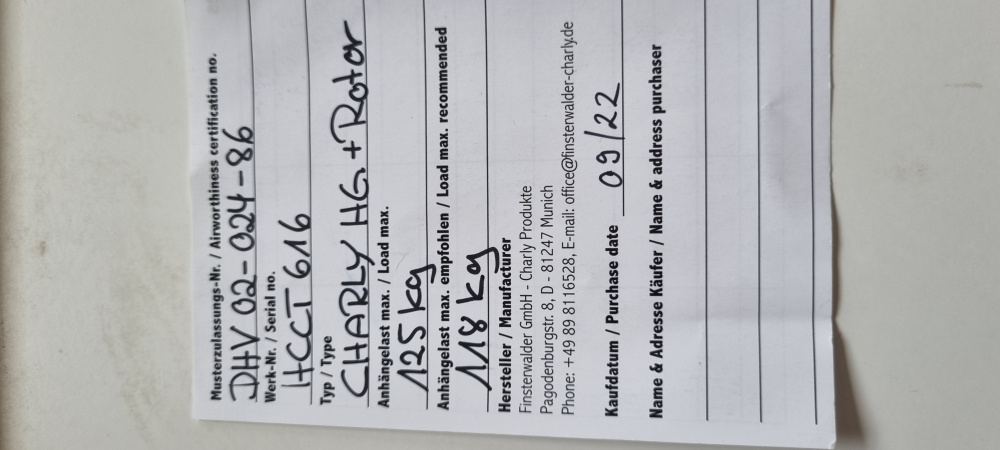 Musterzulassungs-Nr. / Airworthiness certification no.
DHV 02-024-86
Werk-Nr. / Serial no.
HCCT 616
Typ / Type
CHARLY HG. + Rotor
Anhängelast max. / Load max.
125 kg
Anhängelast max. empfohlen / Load max. recommended
118 kg
Hersteller / Manufacturer
Finsterwalder GmbH - Charly Produkte
Pagodenburgstr. 8, D - 81247 Munich
Phone: +49 89 8116528, E-mail: office@finsterwalder-charly.de
Kaufdatum / Purchase date 09/22
Name & Adresse Käufer / Name & address purchaser